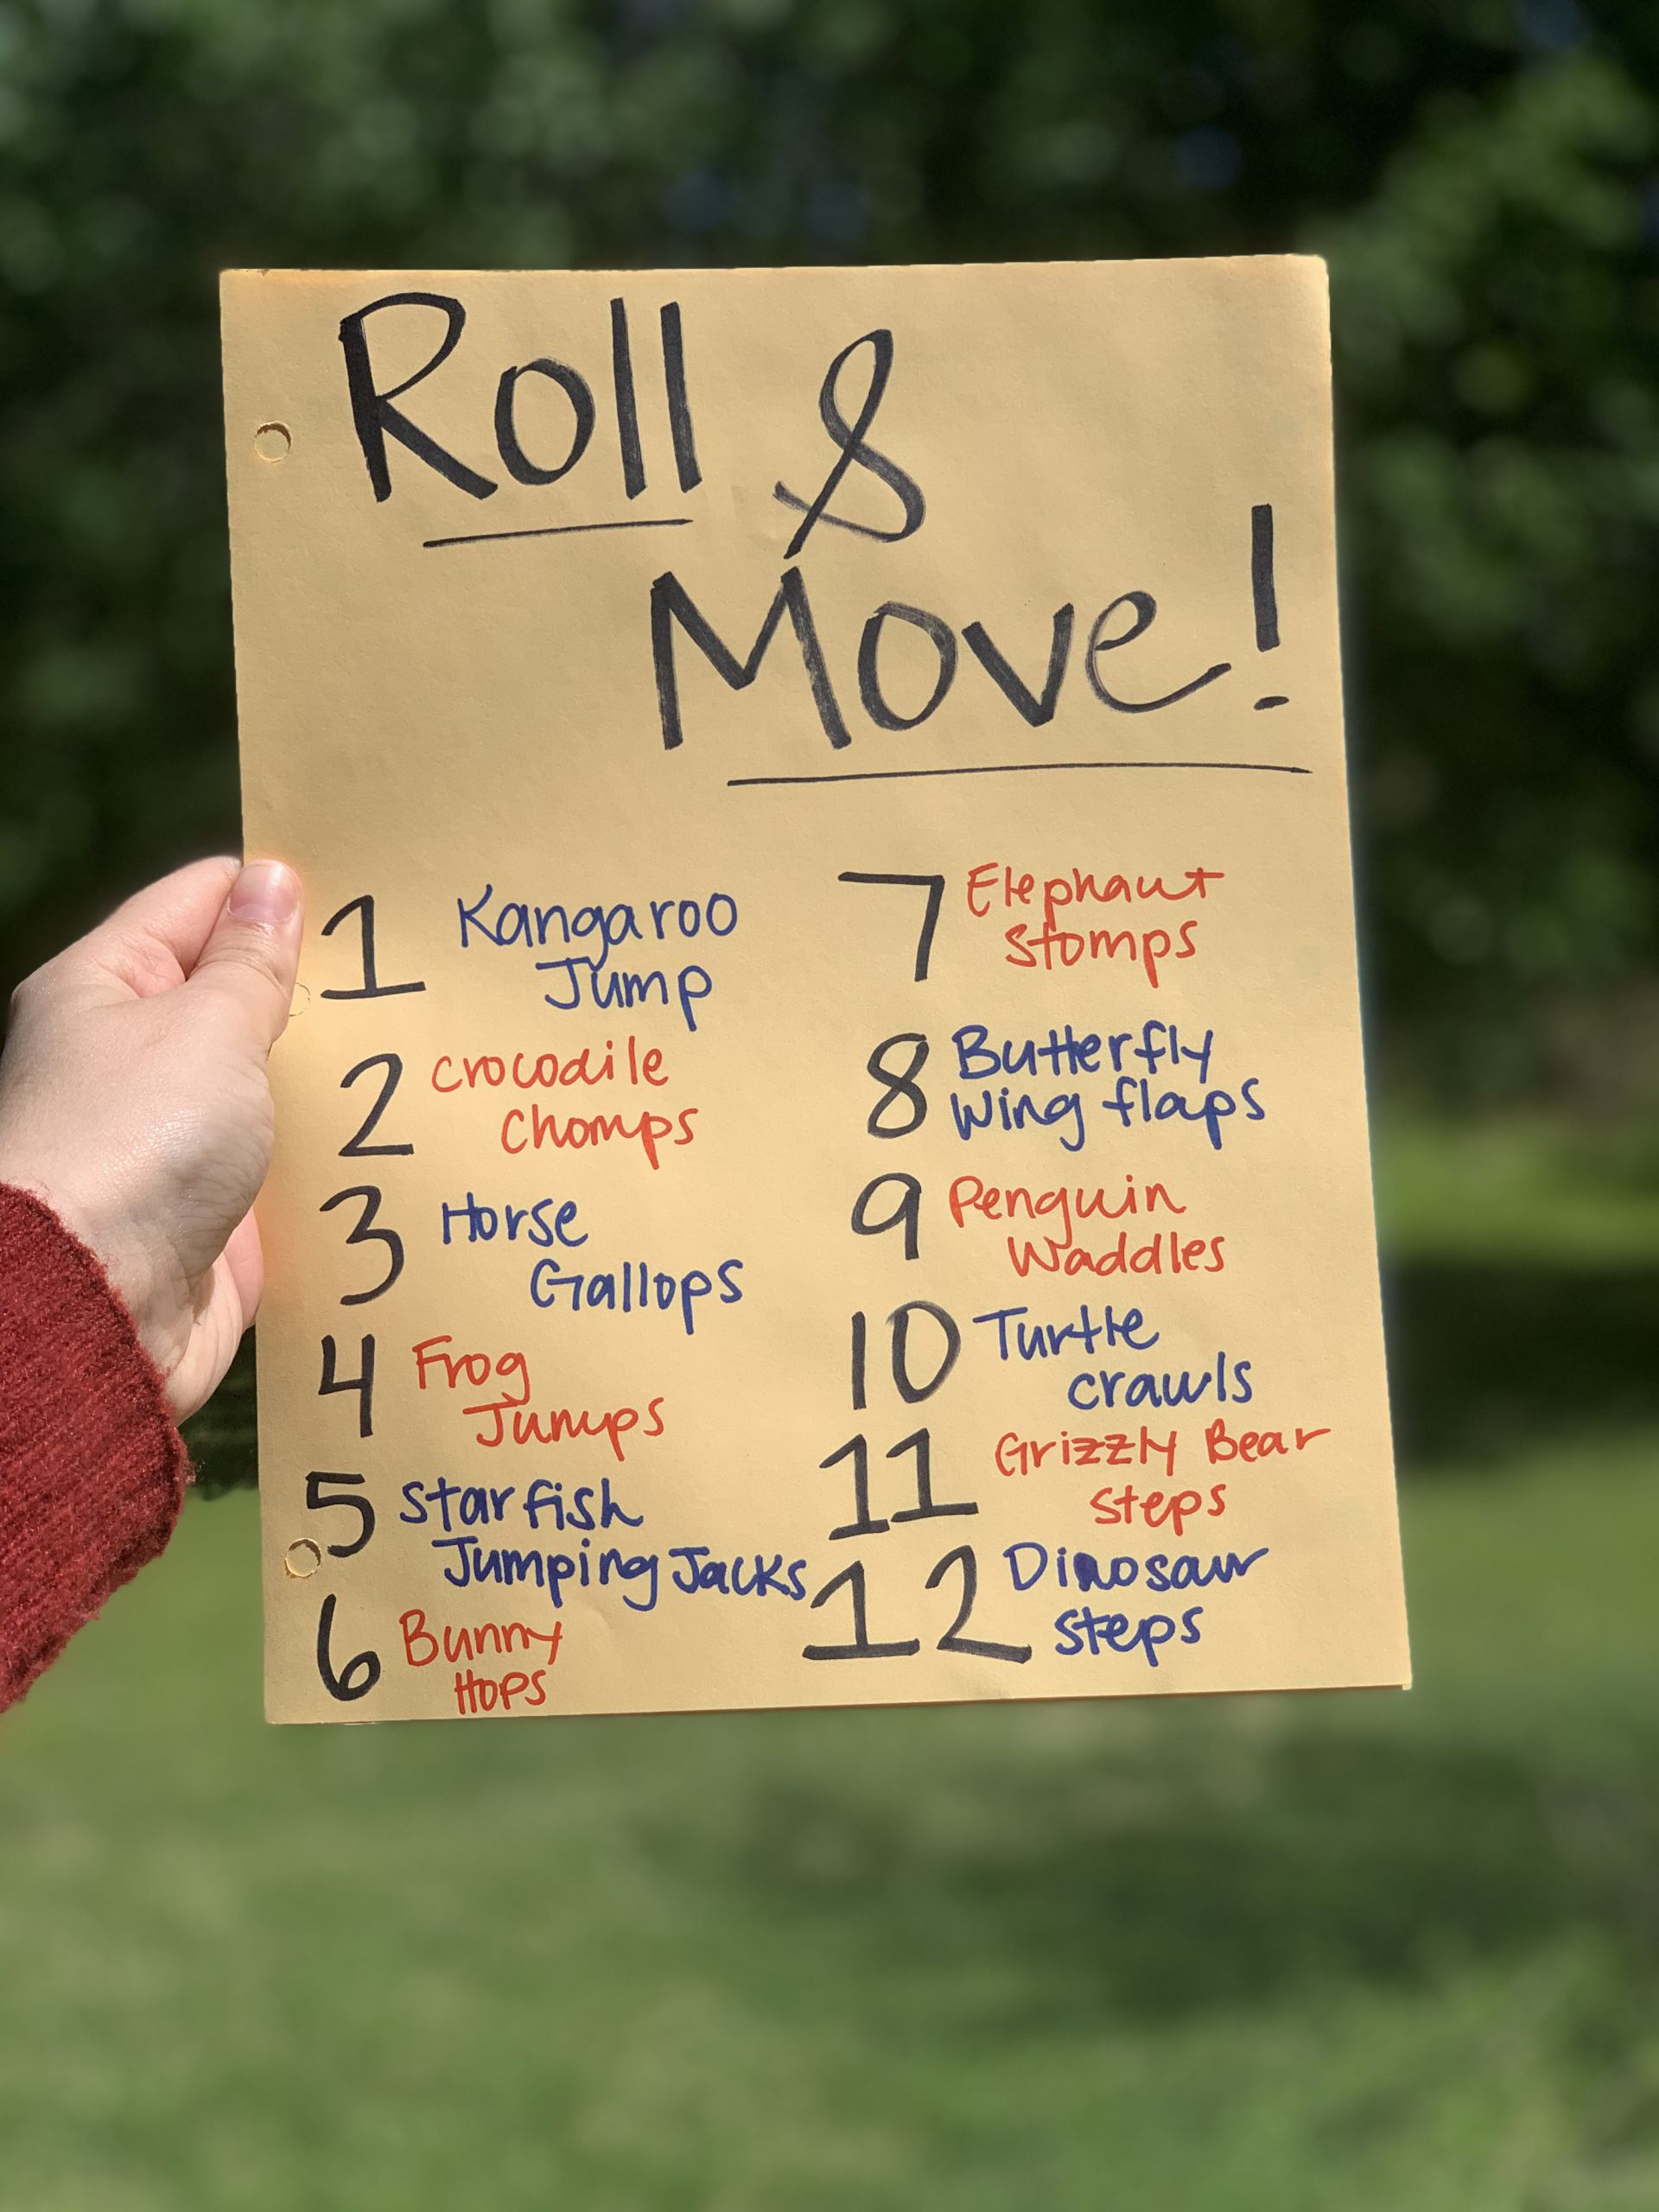 Roll &
Move!
1 Kangaroo
Jump
2 Crocodile
Chomps
3 Horse
Gallops
4 Frog
Jumps
5 Starfish
Jumping Jacks
6 Bunny
Hops
7 Elephant
Stomps
8 Butterfly
Wing flaps
9 Penguin
Waddles
10 Turtle
crawls
11 Grizzly Bear
steps
12 Dinosaur
steps